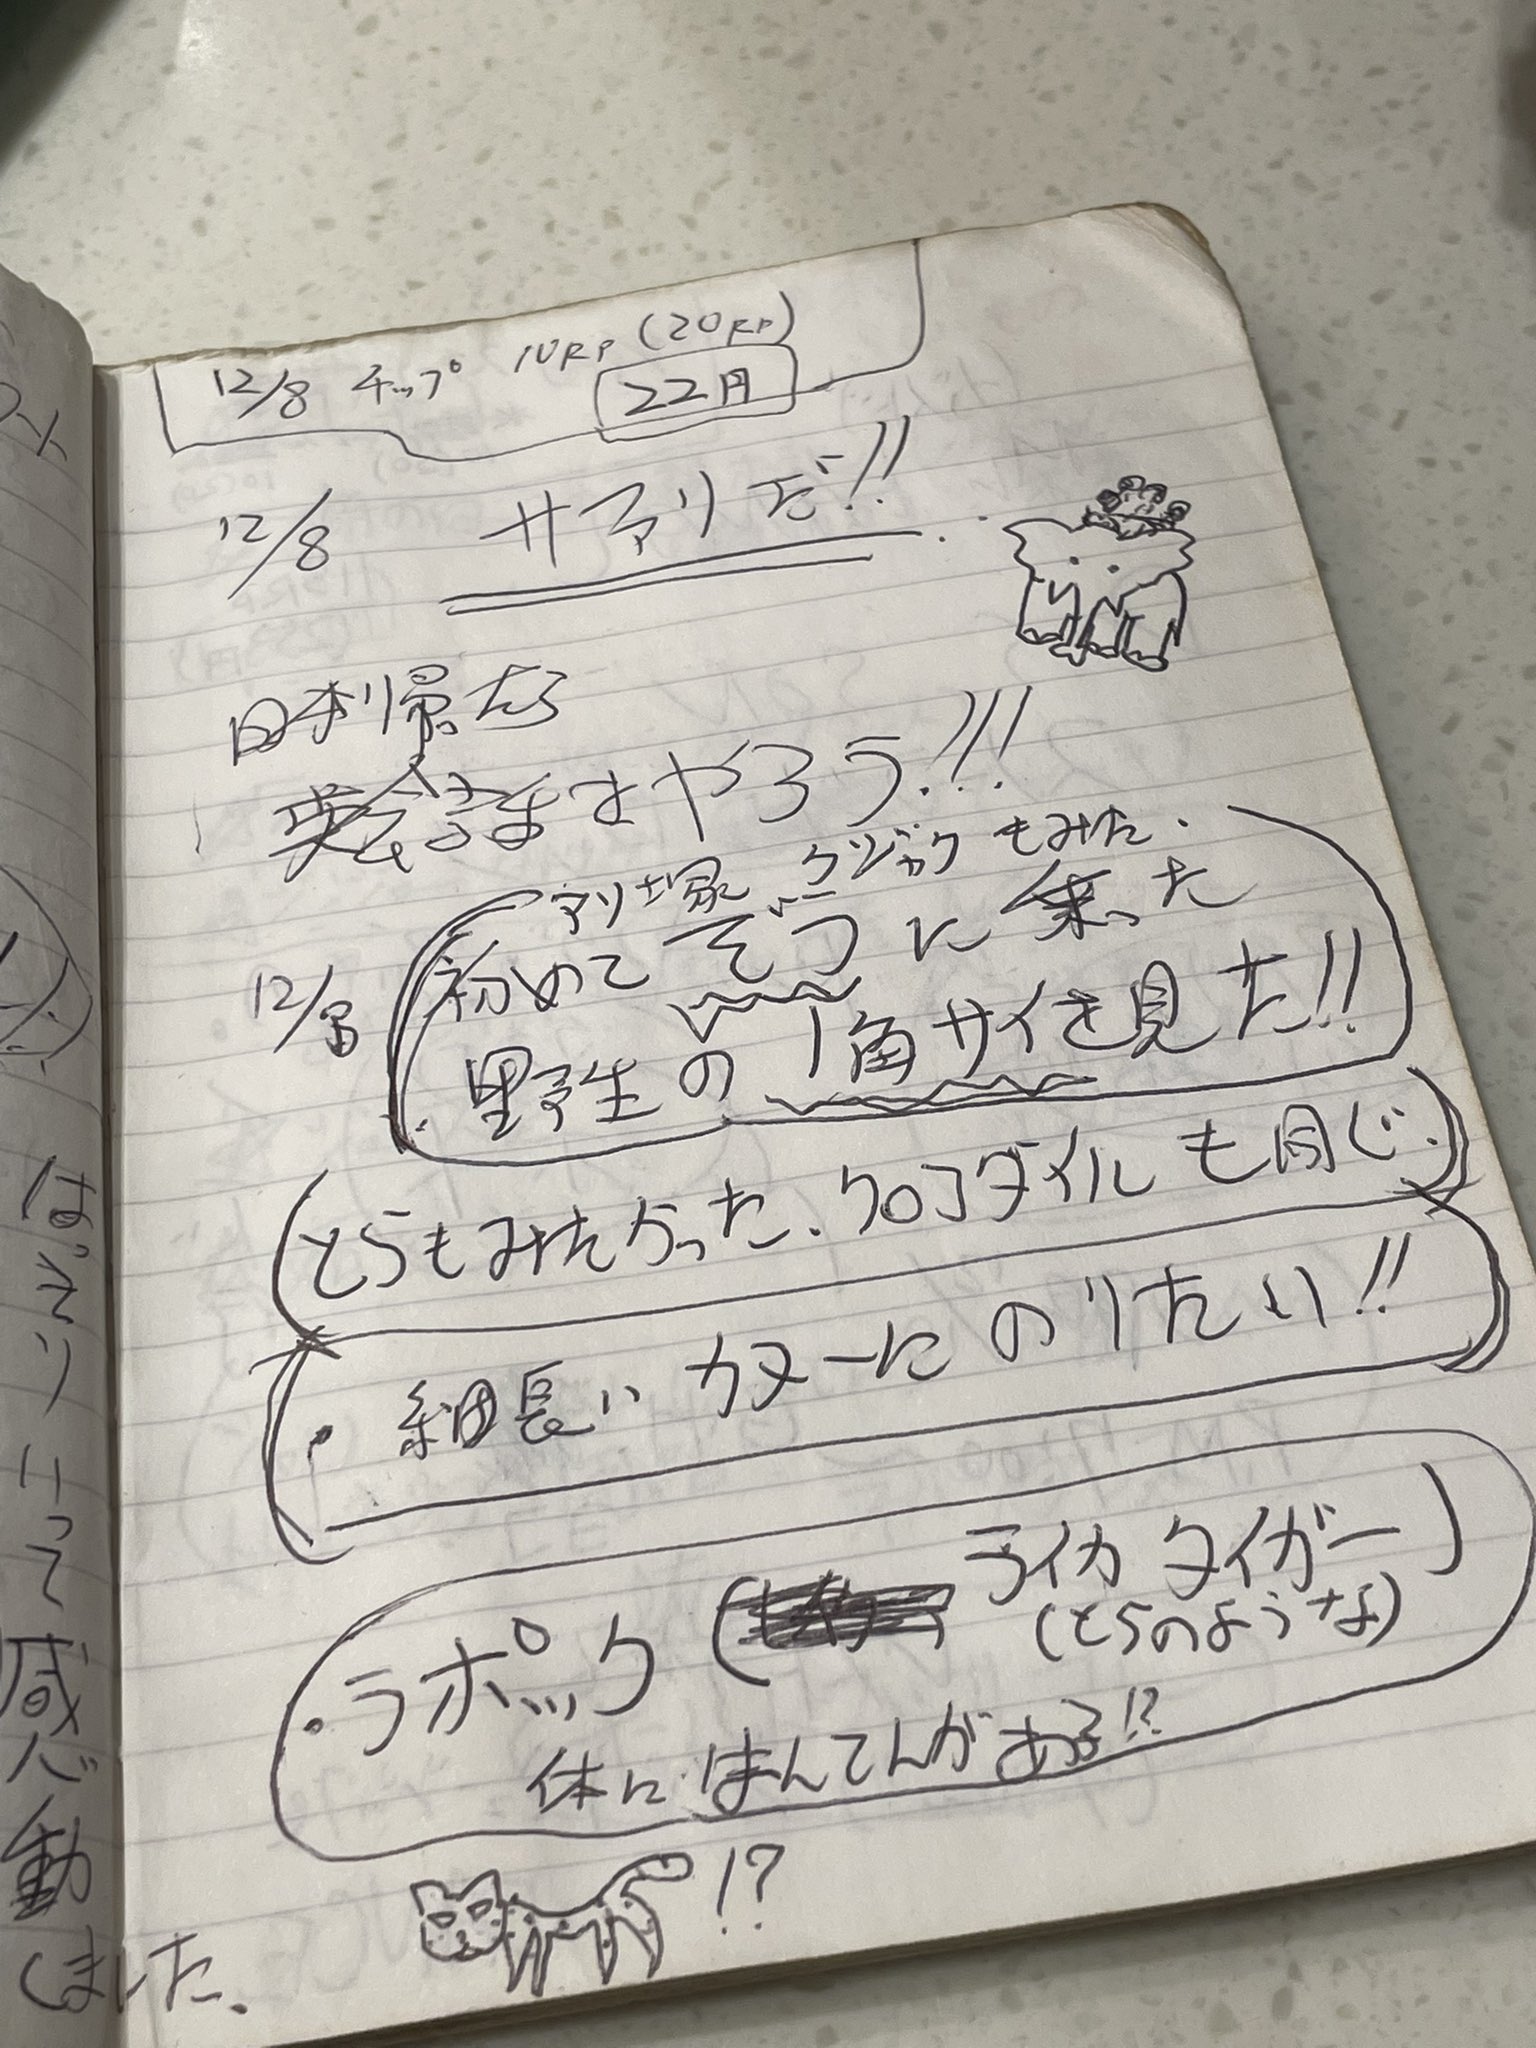 12/8 チップ 10RP (20RP)
22円
12/8 サファリだ!!
日本帰ったら
英会話をやろう!!!
アリ塚 クジャクもみた.
12/8 初めてぞうに乗った
野生の1角サイを見た!!
とらもみたかった.クロコダイルも同じ.
・細長いカヌーにのりたい!!
・ラポック( ライカタイガー)
(とらのような)
体にはんてんがある!?
!?
って感動
しました.